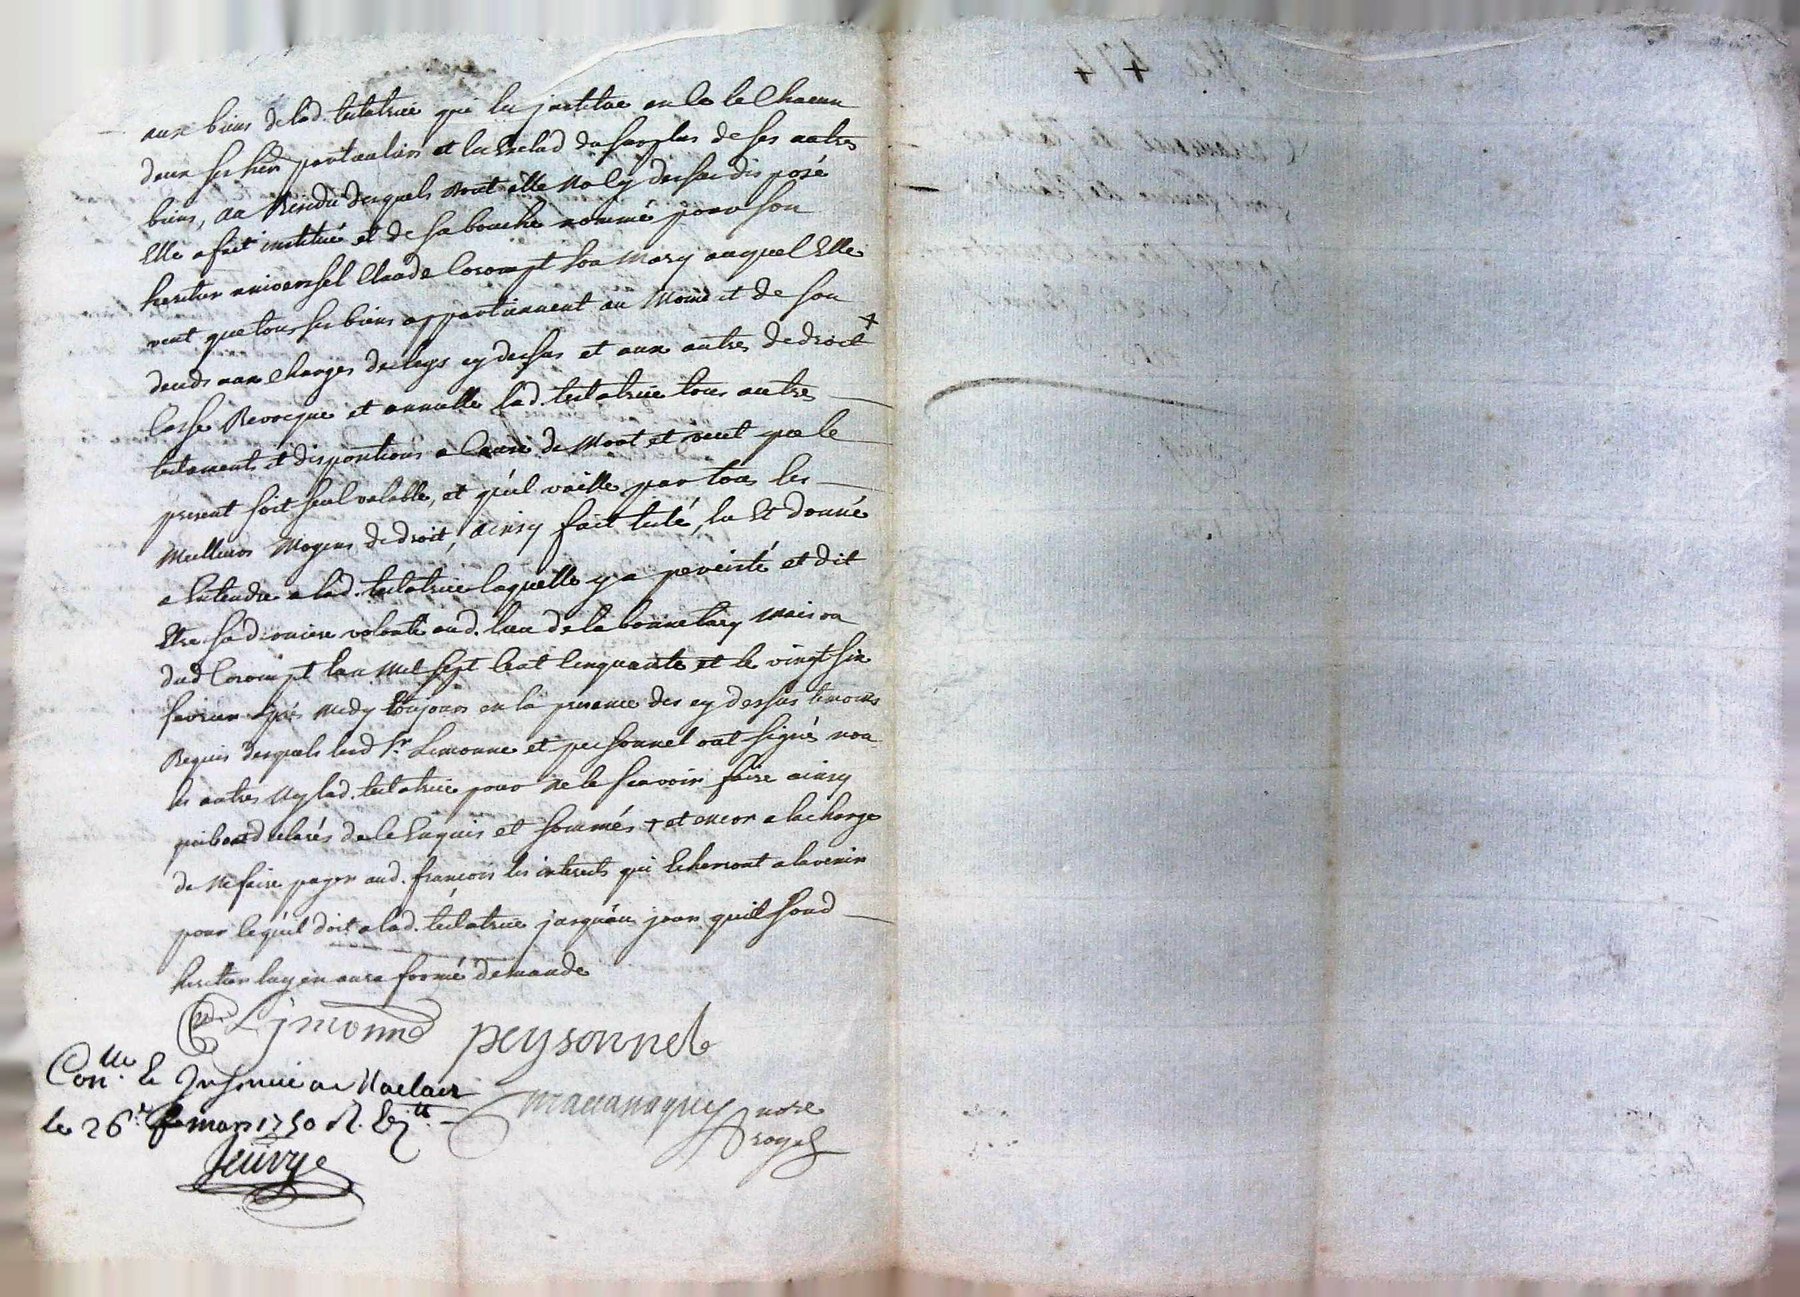 aux biens de lad. testatrice qui les institue en ce le chacun
deux ses heri particuliers et les exclud du surplus de ses autres
biens, au Residu desquels dont elle na cy dessus disposé
Elle a fait institué et de sa bouche nommé pour son
heritier universel Claude Corompt son Mary auquel Elle
veut que tous ses biens appartiennent au moment de son
deceds aux charges des legs cy dessus et aux autres de droit +
Casse Revocque et annulle lad. testatrice tous autres
testaments et dispositions a Cause de Mort et veut que le
present soit seul valable, et qu'il vaille par tous les
Meilleurs Moyens de droit, ainsy fait testé, lu Et donné
a Entendre a lad. testatrice laquelle y a percisté et dit
Etre sa derniere volonté aud. lieu de la bonnetary maison
dud Corompt lan mil sept Cent Cinquante et le vingt six
fevrier apres midy toujours en la presence des cy dessus temoins
Requis desquels lesd sr. Limonne et peisonnel ont signé non
les autres Ny lad. testatrice pour ne le scavoir faire ainsy
quils ont declarés de ce Enquis et sommés + et encor a la charge
de ne faire payer aud. francois les interests qui Echerront a lavenir
pour ce quil doit a lad. testatrice jusqu'au jour quil sond
heritier luy en aura formé demande
Lymonne peysonnel
Con.lle & Insinué au
le 26e mars 1750
no.re
royal